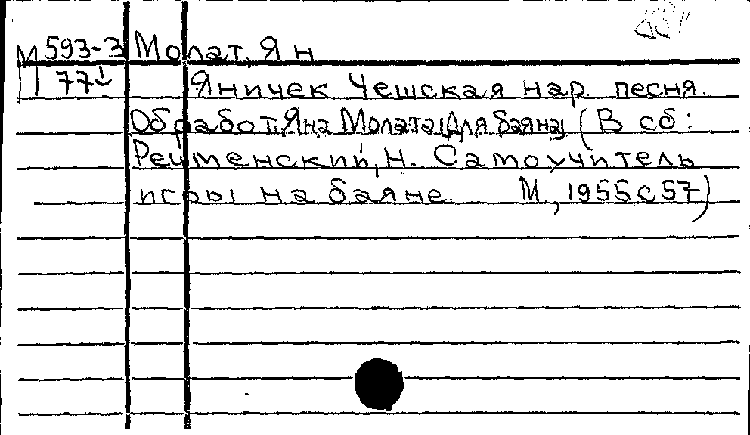 М593-3 Молат, Ян
177 Яничек Чешская нар. песня.
Обработ. Яна Молата (Для баяна) (В сб:
Речменский, Н. Самоучитель
игры на баяне М., 1955 с 57)